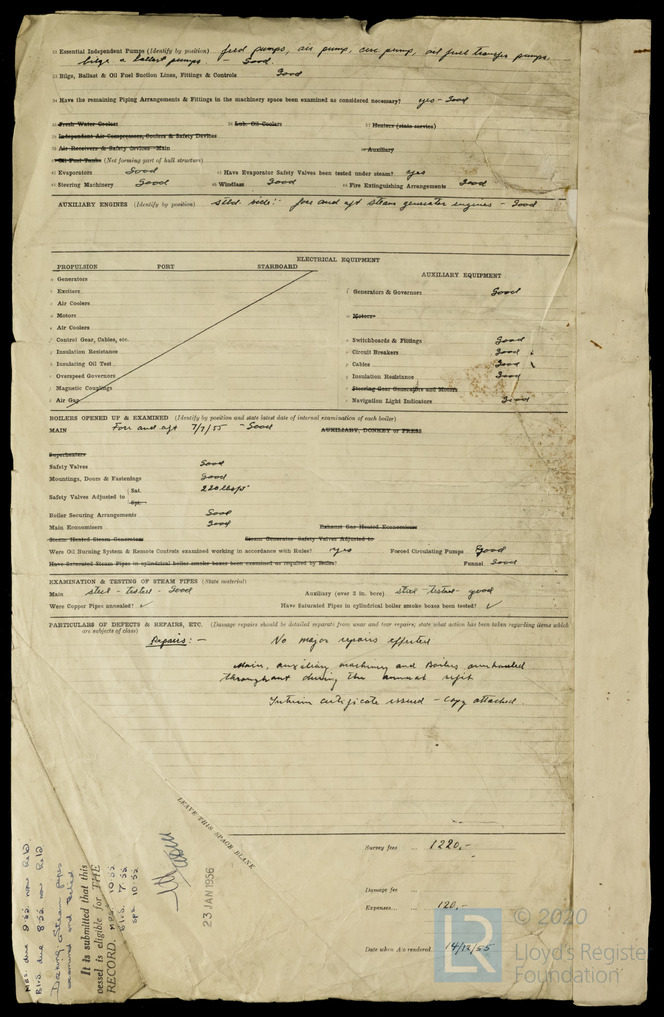 Essential Independent Pumps (Identify by position) feed pumps, air pump, circ pump, oil fuel transfer pumps,
bilge & ballast pumps. - Good.
Bilge, Ballast & Oil Fuel Suction Lines, Fittings & Controls Good
Have the remaining Piping Arrangements & Fittings in the machinery space been examined as considered necessary? yes - Good
Fresh Water Coolers Lub. Oil Coolers Heaters (state service)
Independent Air Compressors, Coolers & Safety Devices
Air Receivers & Safety Devices—Main Auxiliary
Oil Fuel Tanks (Not forming part of hull structure)
Evaporators Good Have Evaporator Safety Valves been tested under steam? yes
Steering Machinery Good Windlass Good Fire Extinguishing Arrangements Good
AUXILIARY ENGINES (Identify by position) stbd. side:- fore and aft steam generator engines - Good
ELECTRICAL EQUIPMENT
PROPULSION PORT STARBOARD
AUXILIARY EQUIPMENT
Generators
Exciters
Generators & Governors Good
Air Coolers
Motors
Motors
Air Coolers
Control Gear, Cables, etc.
Switchboards & Fittings Good
Insulation Resistance
Circuit Breakers Good
Insulating Oil Test
Cables Good
Overspeed Governors
Insulation Resistance Good
Magnetic Couplings
Steering Gear Generators and Motors
Air Gap
Navigation Light Indicators Good
BOILERS OPENED UP & EXAMINED (Identify by position and state latest date of internal examination of each boiler)
MAIN Fore and aft 7/7/55 - Good AUXILIARY, DONKEY or PRESS
Superheaters
Safety Valves Good
Mountings, Doors & Fastenings Good
Safety Valves Adjusted to Sat. 220 lbs/□"
Spt.
Boiler Securing Arrangements Good
Main Economisers Good Exhaust Gas Heated Economisers
Steam Heated Steam Generators Steam Generator Safety Valves Adjusted to
Were Oil Burning System & Remote Controls examined working in accordance with Rules? yes Forced Circulating Pumps Good
Have Saturated Steam Pipes in cylindrical boiler smoke boxes been examined as required by Rules? Funnel Good
EXAMINATION & TESTING OF STEAM PIPES (State material)
Main steel - tested - Good Auxiliary (over 3 in. bore) steel - tested - good
Were Copper Pipes annealed? ✓ Have Saturated Pipes in cylindrical boiler smoke boxes been tested? ✓
PARTICULARS OF DEFECTS & REPAIRS, ETC. (Damage repairs should be detailed separate from wear and tear repairs; state what action has been taken regarding items which
are subjects of class)
Repairs:- No major repairs effected
Main, auxiliary machinery and Boilers overhauled
throughout during the annual refit
Interim certificate issued - Copy attached.
LEAVE THIS SPACE BLANK
Survey fees ... 1220,-
Damage fee ...
Expenses... ... 120,-
Date when A/c rendered. 14/12/55
23 JAN 1956
It is submitted that this
vessel is eligible for THE
RECORD.
© 2020
LR
Lloyd's Register
Foundation